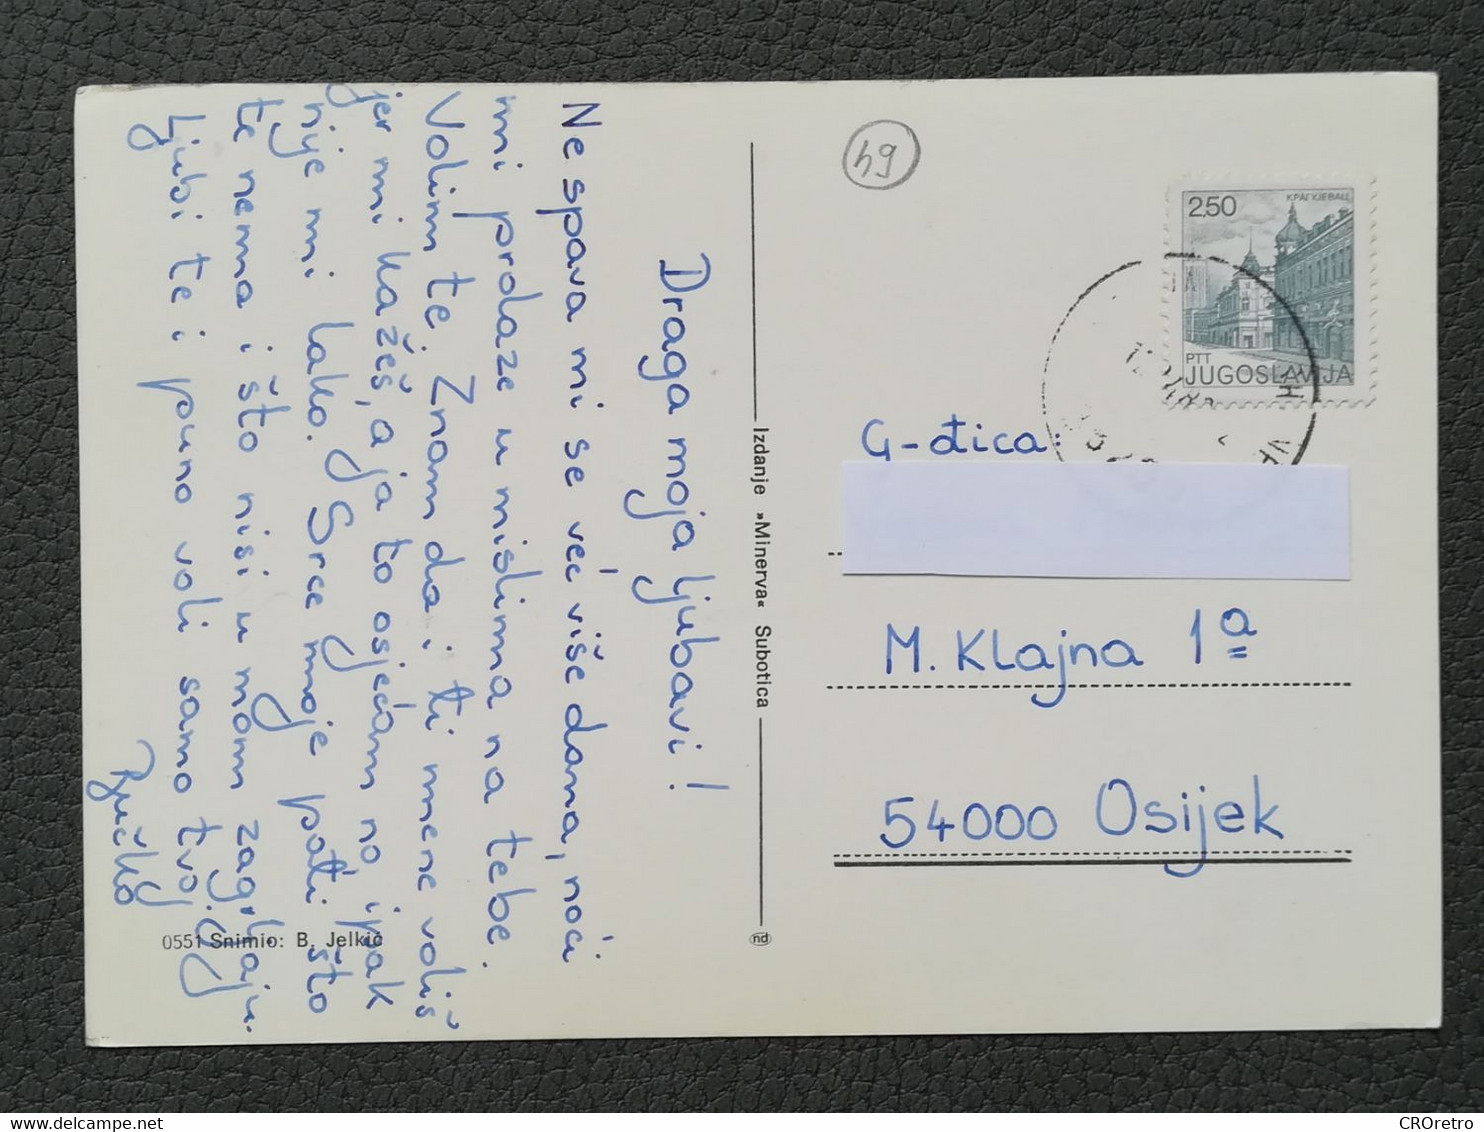 Draga moja ljubavi!
Ne spava mi se već više dana, noći
mi prolaze u mislima na tebe.
Volim te. Znam da i ti mene voliš
jer mi kažeš, a ja to osjećam no, ipak
nije mi lako. Srce moje pati što
te nema i što nisi u mom zagrljaju.
Ljubi te i puno voli samo tvoj
0551 Snimio: B. Jelkić
Izdanje »Minerva« Subotica
nd
49
2,50
КРАГУЈЕВАЦ
PTT
JUGOSLAVIJA
G-đica:
M. Klajna 1a
54000 Osijek
CROretro